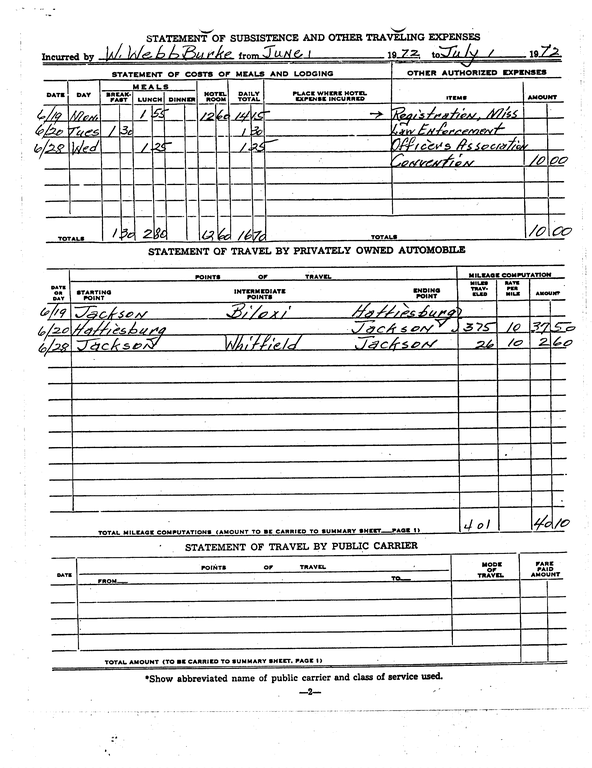 STATEMENT OF SUBSISTENCE AND OTHER TRAVELING EXPENSES
Incurred by W. Webb Burke from June 1 1972 to July 1 1972
STATEMENT OF COSTS OF MEALS AND LODGING OTHER AUTHORIZED EXPENSES
MEALS
DATE DAY BREAK-FAST LUNCH DINNER HOTEL ROOM DAILY TOTAL PLACE WHERE HOTEL EXPENSE INCURRED ITEMS AMOUNT
6/19 Mon. 1 55 12 60 14 15 → Registration, Miss
6/20 Tues 1 30 1 30 Law Enforcement
6/28 Wed 1 25 1 25 Officers Association
Convention 10 00
TOTALS 1 30 2 80 12 60 16 70 TOTALS 10 00
STATEMENT OF TRAVEL BY PRIVATELY OWNED AUTOMOBILE
POINTS OF TRAVEL MILEAGE COMPUTATION
DATE OR DAY STARTING POINT INTERMEDIATE POINTS ENDING POINT MILES TRAV-ELED RATE PER MILE AMOUNT
6/19 Jackson Biloxi Hattiesburg
6/20 Hattiesburg Jackson 375 10 37 50
6/28 Jackson Whitfield Jackson 26 10 2 60
TOTAL MILEAGE COMPUTATIONS (AMOUNT TO BE CARRIED TO SUMMARY SHEET—PAGE 1) 401 40 10
STATEMENT OF TRAVEL BY PUBLIC CARRIER
DATE POINTS OF TRAVEL MODE OF TRAVEL FARE PAID AMOUNT
FROM TO
TOTAL AMOUNT (TO BE CARRIED TO SUMMARY SHEET, PAGE 1)
*Show abbreviated name of public carrier and class of service used.
—2—